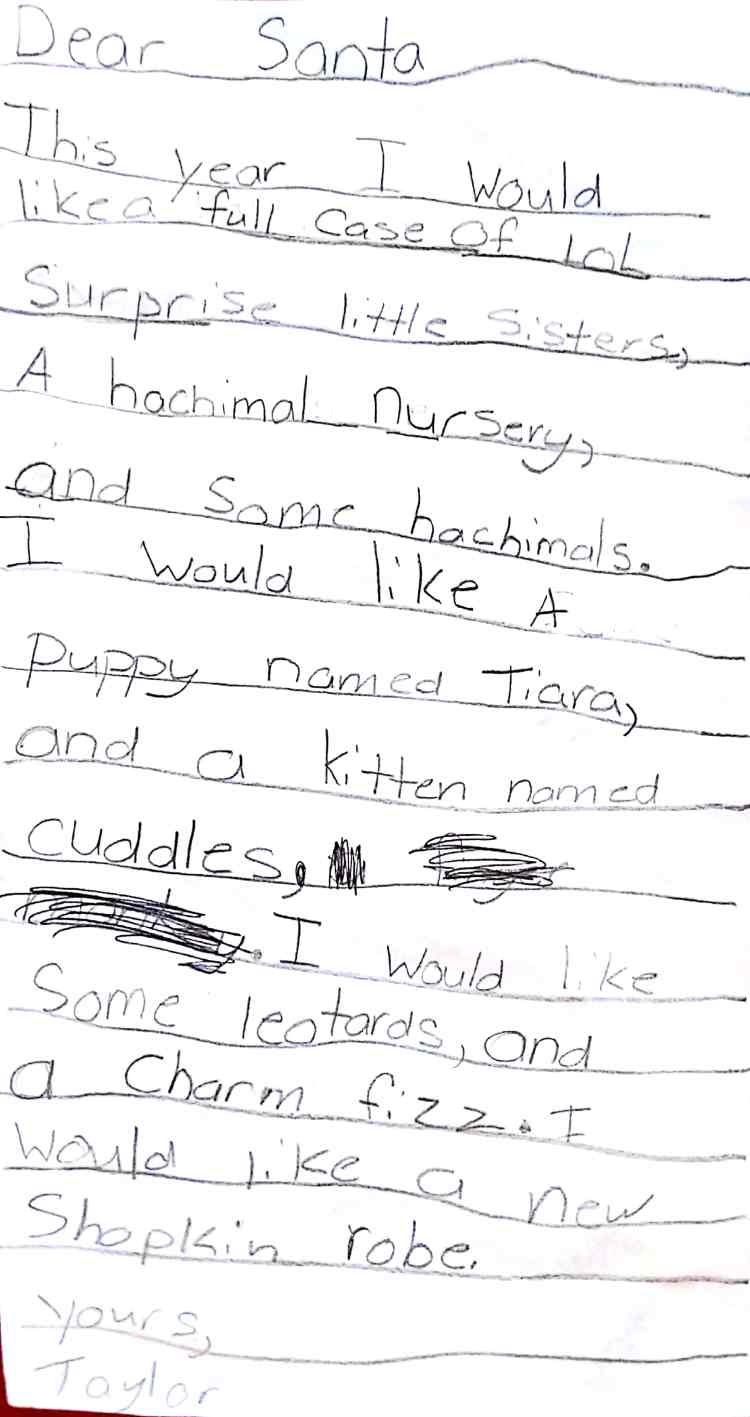 Dear Santa
This year I would
like a full case of LOL
Surprise little Sisters,
A hachimal nursery,
and Some hachimals.
I would like A
puppy named Tiara,
and a kitten named
cuddles,
. I would like
Some leotards, and
a Charm fizz. I
would like a new
Shopkin robe.
yours,
Taylor